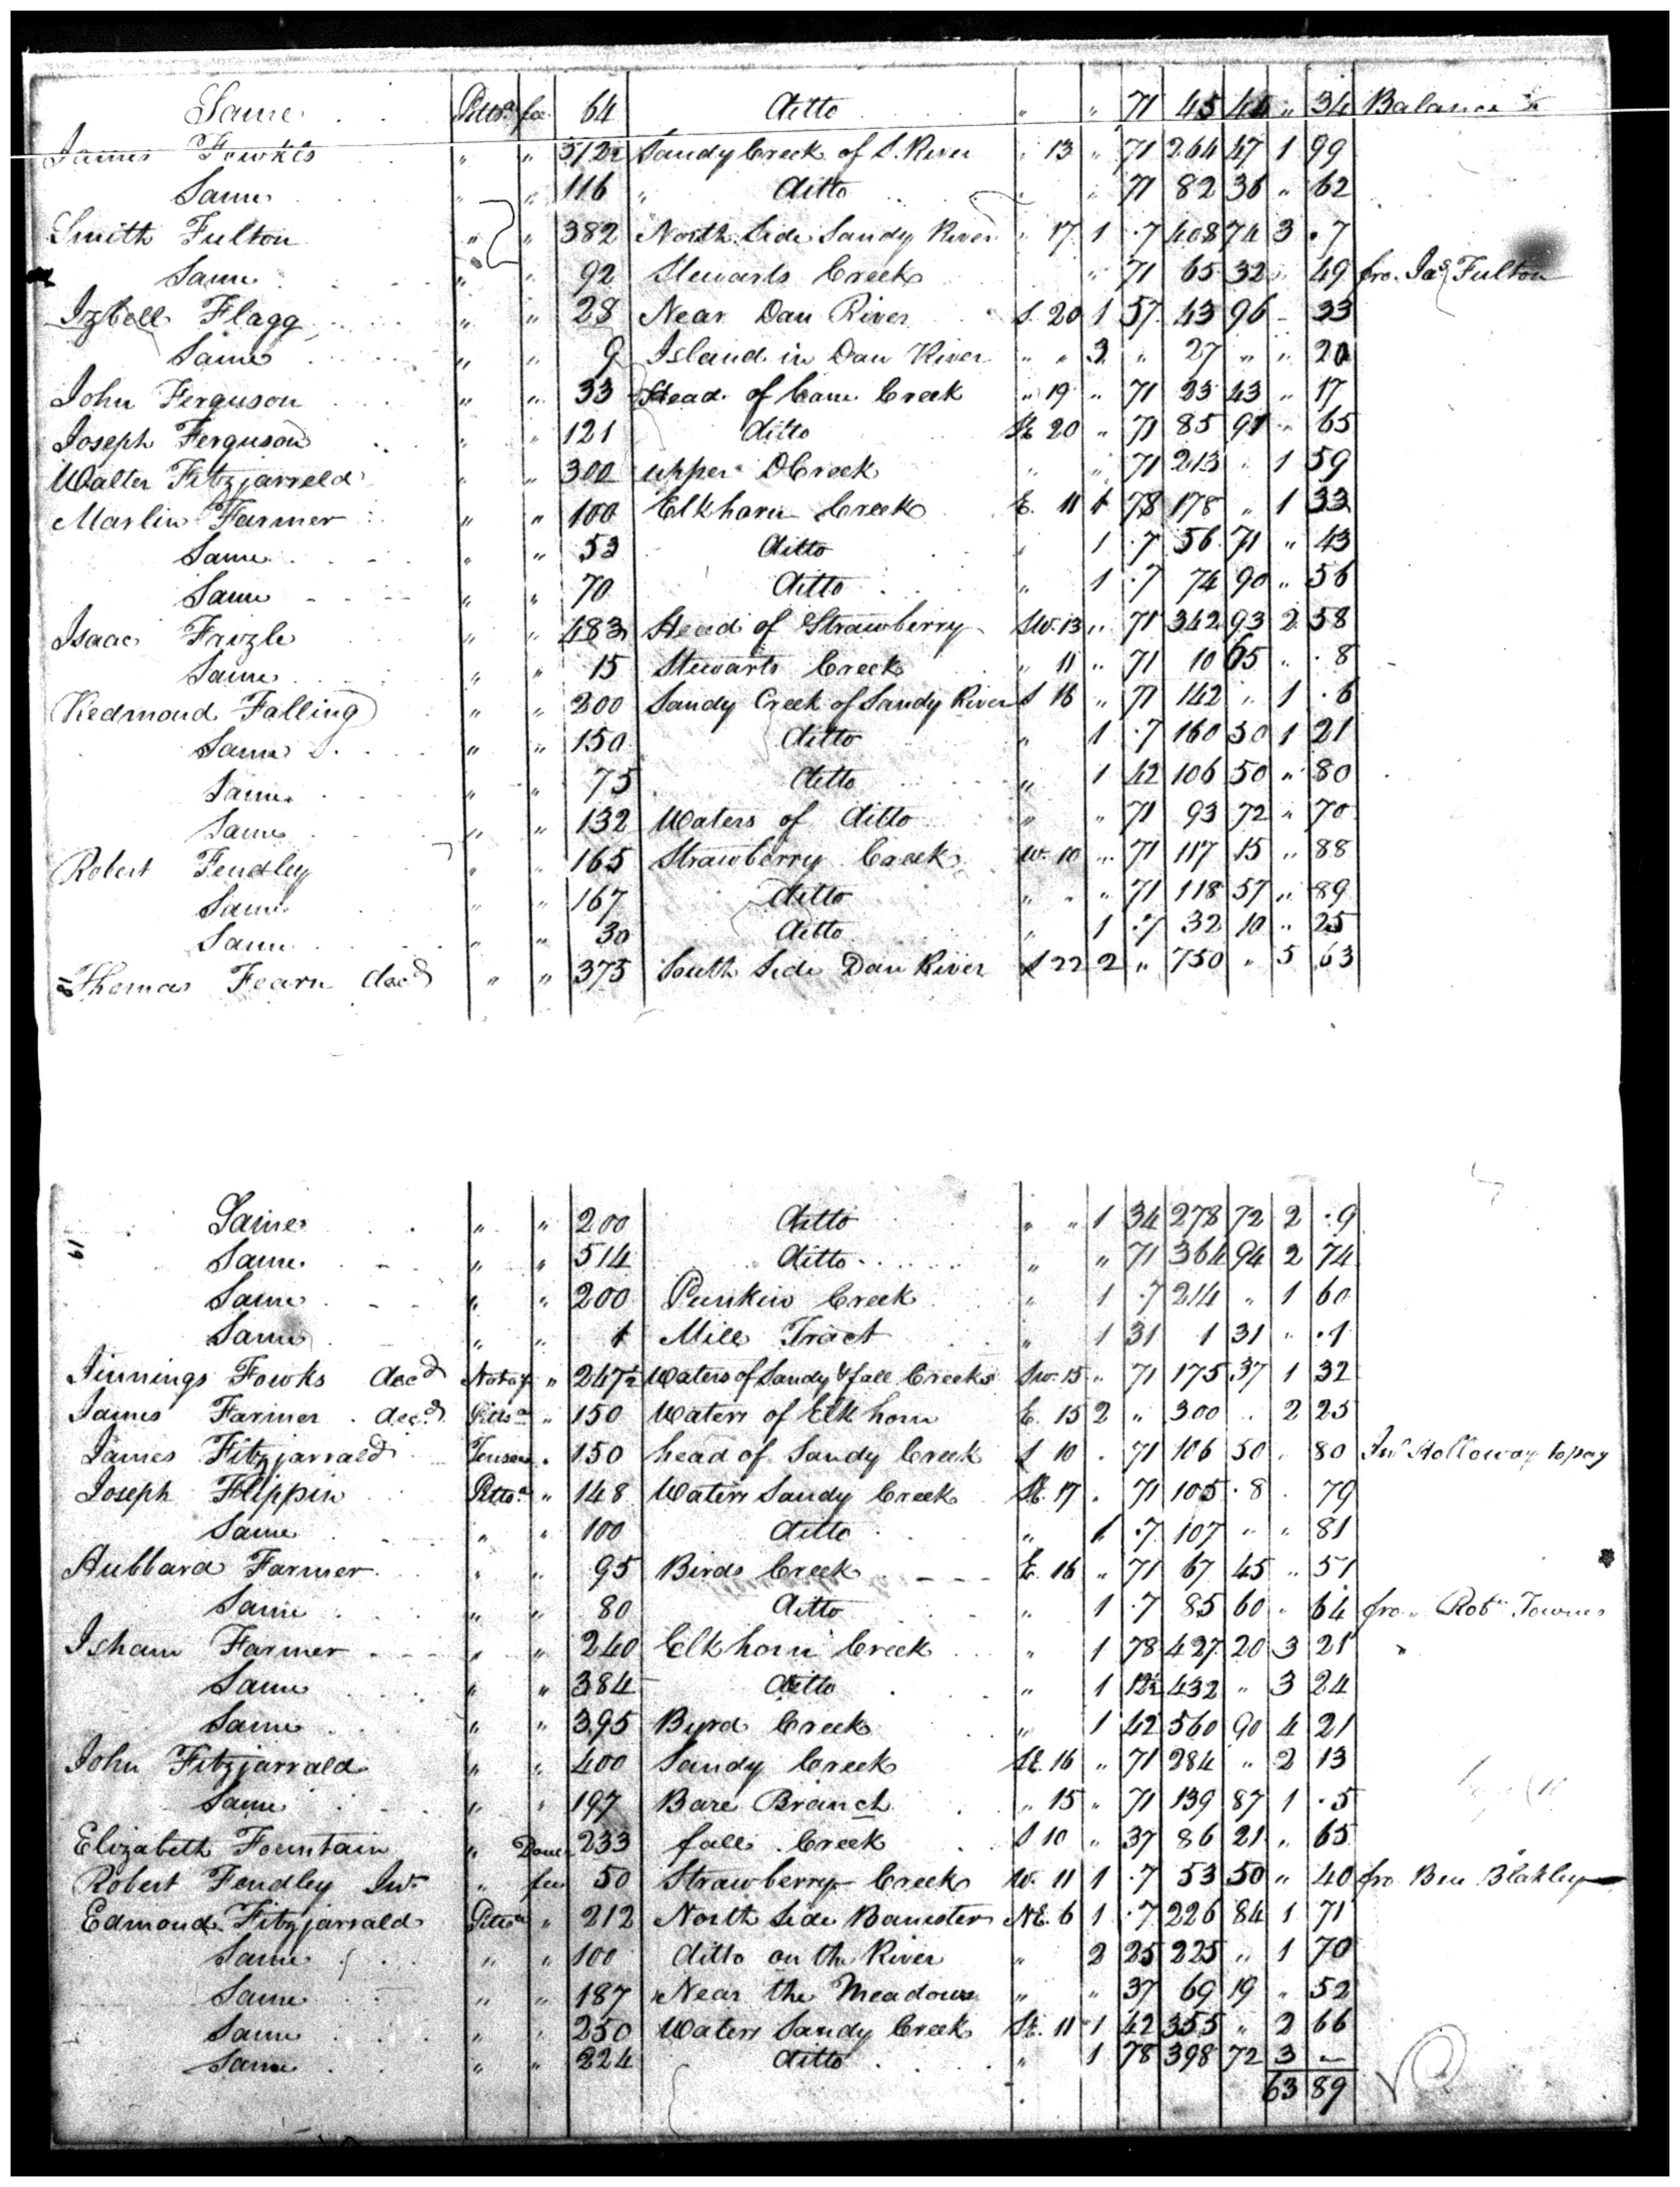 Same Pittsa. fee 64 Ditto " " 71 45 44 " 34 Balance
James Fowkes " " 372½ Sandy Creek of S. River " 13 " 71 264 47 1 99
Same " " 116 " Ditto " " 71 82 36 " 62
Smith Fulton " " 382 North Side Sandy River " 17 1 .7 408 74 3 .7
Same " " 92 Stewarts Creek " 71 65 32 " 49 fro. Jas Fulton
Izbell Flagg " " 28 Near Dan River S. 20 1 57 43 96 - 33
Same " " 9 Island in Dan River " " 3 " 27 " " 20
John Ferguson " " 33 Head of Cane Creek " 19 " 71 23 43 " 17
Joseph Ferguson " " 121 Ditto SE 20 " 71 85 91 " 65
Walter Fitzjarreld " " 300 upper DCreek " " 71 213 " 1 59
Marlin Farmer " " 100 Elkhorn Creek E. 11 1 78 178 " 1 33
Same " " 53 Ditto " 1 .7 56 71 " 43
Same " " 70 Ditto " 1 .7 74 90 " 56
Isaac Frizle " " 483 Head of Strawberry SW. 13 " 71 342 93 2 58
Same " " 15 Stewarts Creek " 11 " 71 10 65 " .8
Redmond Falling " " 200 Sandy Creek of Sandy River S 16 " 71 142 " 1 .6
Same " " 150 Ditto " 1 .7 160 50 1 21
Same " " 75 Ditto " 1 42 106 50 " 80
Same " " 132 Waters of Ditto " " 71 93 72 " 70
Robert Fendley " " 165 Strawberry Creek W. 10 " 71 117 15 " 88
Same " " 167 Ditto " " " 71 118 57 " 89
Same " " 30 Ditto " 1 .7 32 10 " 25
18 Thomas Fearn decd " " 375 South Side Dan River S 22 2 " 750 " 5 63
Same " " 200 Ditto " " 1 34 278 72 2 .9
19
Same " " 514 Ditto " " 71 364 94 2 74
Same " " 200 Punkin Creek " 1 .7 214 " 1 60
Same " " 1 Mill Tract " 1 31 1 31 " .1
Jinnings Fowks decd " 247½ Waters of Sandy & fall Creeks SW. 15 " 71 175 37 1 32
James Farmer decd. Pittsa " 150 Waters of Elkhorn E. 15 2 " 300 " 2 25
James Fitzjarrald " 150 head of Sandy Creek S 10 " 71 106 50 " 80 Jno Holloway to pay
Joseph Flippin Pittsa " 148 Waters Sandy Creek SE. 17 " 71 105 .8 " 79
Same " " 100 Ditto " 1 .7 107 " " 81
Hubbard Farmer " " 95 Birds Creek E. 16 " 71 67 45 " 51
Same " " 80 Ditto " 1 .7 85 60 " 64 fro. Robt Townes
Isham Farmer " " 240 Elkhorn Creek " 1 78 427 20 3 21 "
Same " " 384 Ditto " 1 12½ 432 " 3 24
Same " " 395 Byrd Creek " 1 42 560 90 4 21
John Fitzjarrald " " 400 Sandy Creek SE. 16 " 71 284 " 2 13
Same " " 197 Bare Branch " 15 " 71 139 87 1 .5
Elizabeth Fountain " Dower 233 fall Creek S 10 " 37 86 21 " 65
Robert Fendley Jur " fee 50 Strawberry Creek W. 11 1 .7 53 50 " 40 fro Ben Blakley
Edmond Fitzjarrald Pittsa " 212 North Side Banister NE. 6 1 .7 226 84 1 71
Same " " 100 Ditto on the River " 2 25 225 " 1 70
Same " " 187 Near the Meadows " " 37 69 19 " 52
Same " " 250 Waters Sandy Creek SE. 11 1 42 355 " 2 66
Same " " 224 Ditto " 1 78 398 72 3 -
63 89